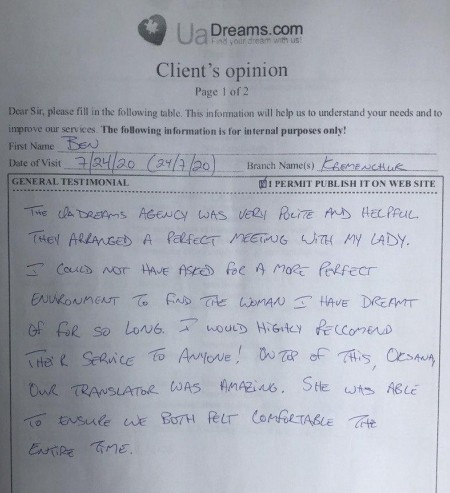 UaDreams.com
Find your dream with us!
Client's opinion
Page 1 of 2
Dear Sir, please fill in the following table. This information will help us to understand your needs and to
improve our services. The following information is for internal purposes only!
First Name BEN
Date of Visit 7/24/20 (24/7/20) Branch Name(s) KREMENCHUK
GENERAL TESTIMONIAL I PERMIT PUBLISH IT ON WEB SITE
THE UADREAMS AGENCY WAS VERY POLITE AND HELPFUL
THEY ARRANGED A PERFECT MEETING WITH MY LADY.
I COULD NOT HAVE ASKED FOR A MORE PERFECT
ENVIRONMENT TO FIND THE WOMAN I HAVE DREAMT
OF FOR SO LONG. I WOULD HIGHLY RECCOMEND
THEIR SERVICE TO ANYONE! ON TOP OF THIS, OKSANA,
OUR TRANSLATOR WAS AMAZING. SHE WAS ABLE
TO ENSURE WE BOTH FELT COMFORTABLE THE
ENTIRE TIME.